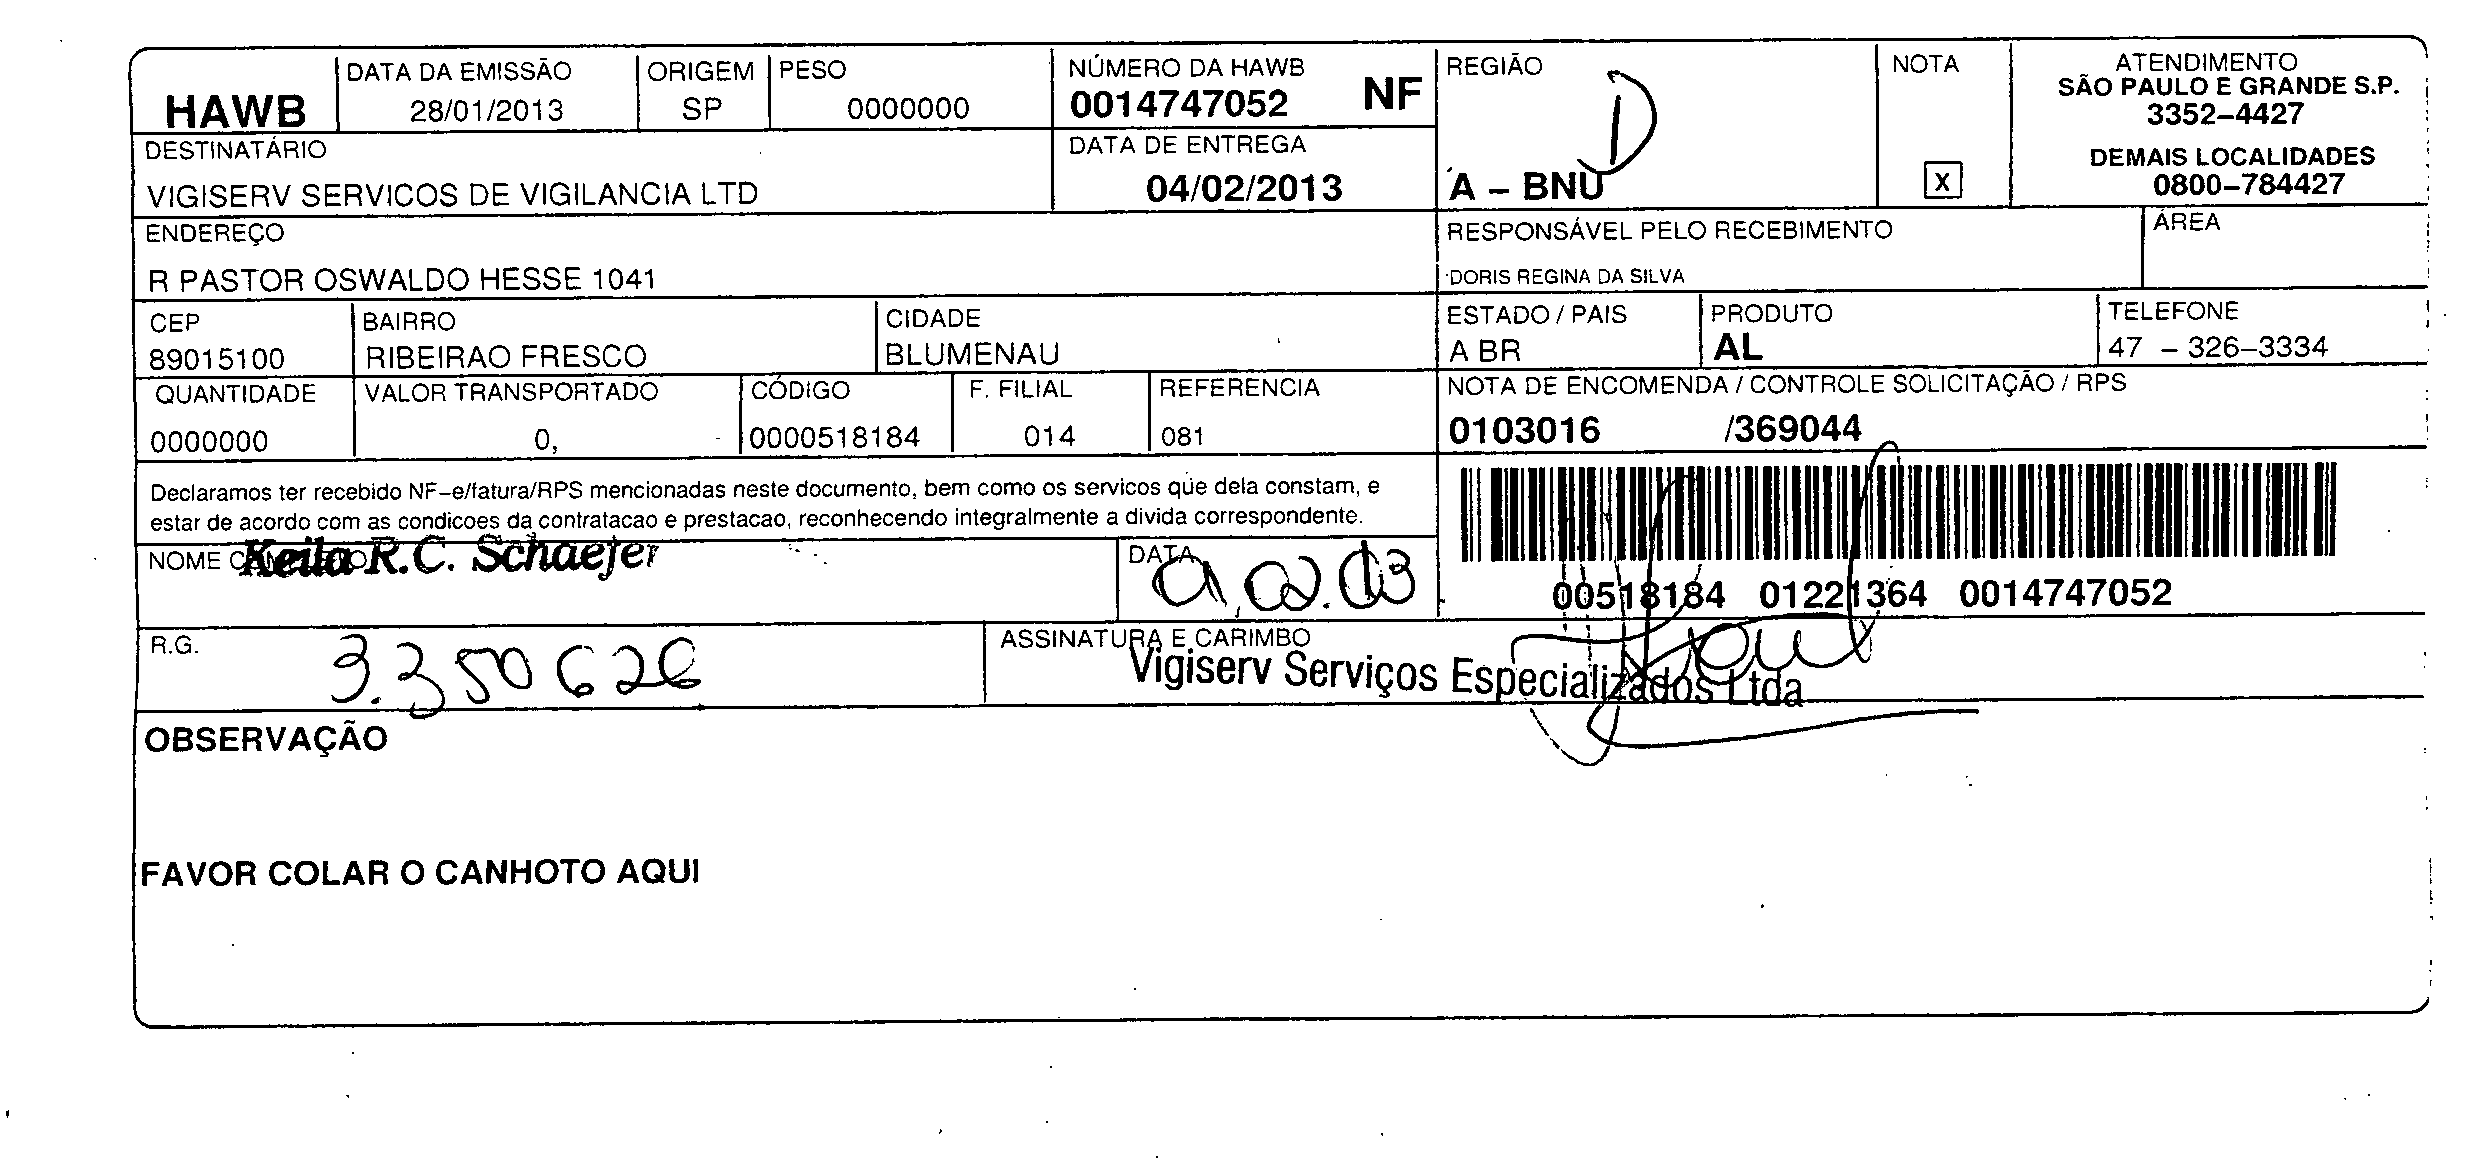 HAWB
DATA DA EMISSÃO
28/01/2013
ORIGEM
SP
PESO
0000000
NÚMERO DA HAWB
0014747052 NF
REGIÃO
D
A – BNU
NOTA
X
ATENDIMENTO
SÃO PAULO E GRANDE S.P.
3352–4427
DEMAIS LOCALIDADES
0800–784427
DESTINATÁRIO
VIGISERV SERVICOS DE VIGILANCIA LTD
DATA DE ENTREGA
04/02/2013
ENDEREÇO
R PASTOR OSWALDO HESSE 1041
RESPONSÁVEL PELO RECEBIMENTO
DORIS REGINA DA SILVA
ÁREA
CEP
89015100
BAIRRO
RIBEIRAO FRESCO
CIDADE
BLUMENAU
ESTADO / PAIS
A BR
PRODUTO
AL
TELEFONE
47 – 326–3334
QUANTIDADE
0000000
VALOR TRANSPORTADO
0,
CÓDIGO
0000518184
F. FILIAL
014
REFERENCIA
081
NOTA DE ENCOMENDA / CONTROLE SOLICITAÇÃO / RPS
0103016 /369044
Declaramos ter recebido NF–e/fatura/RPS mencionadas neste documento, bem como os servicos que dela constam, e
estar de acordo com as condicoes da contratacao e prestacao, reconhecendo integralmente a divida correspondente.
00518184 01221364 0014747052
NOME
Keila R.C. Schaefer
DATA
R.G.
3.350626
ASSINATURA E CARIMBO
Vigiserv Serviços Especializados Ltda
OBSERVAÇÃO
FAVOR COLAR O CANHOTO AQUI